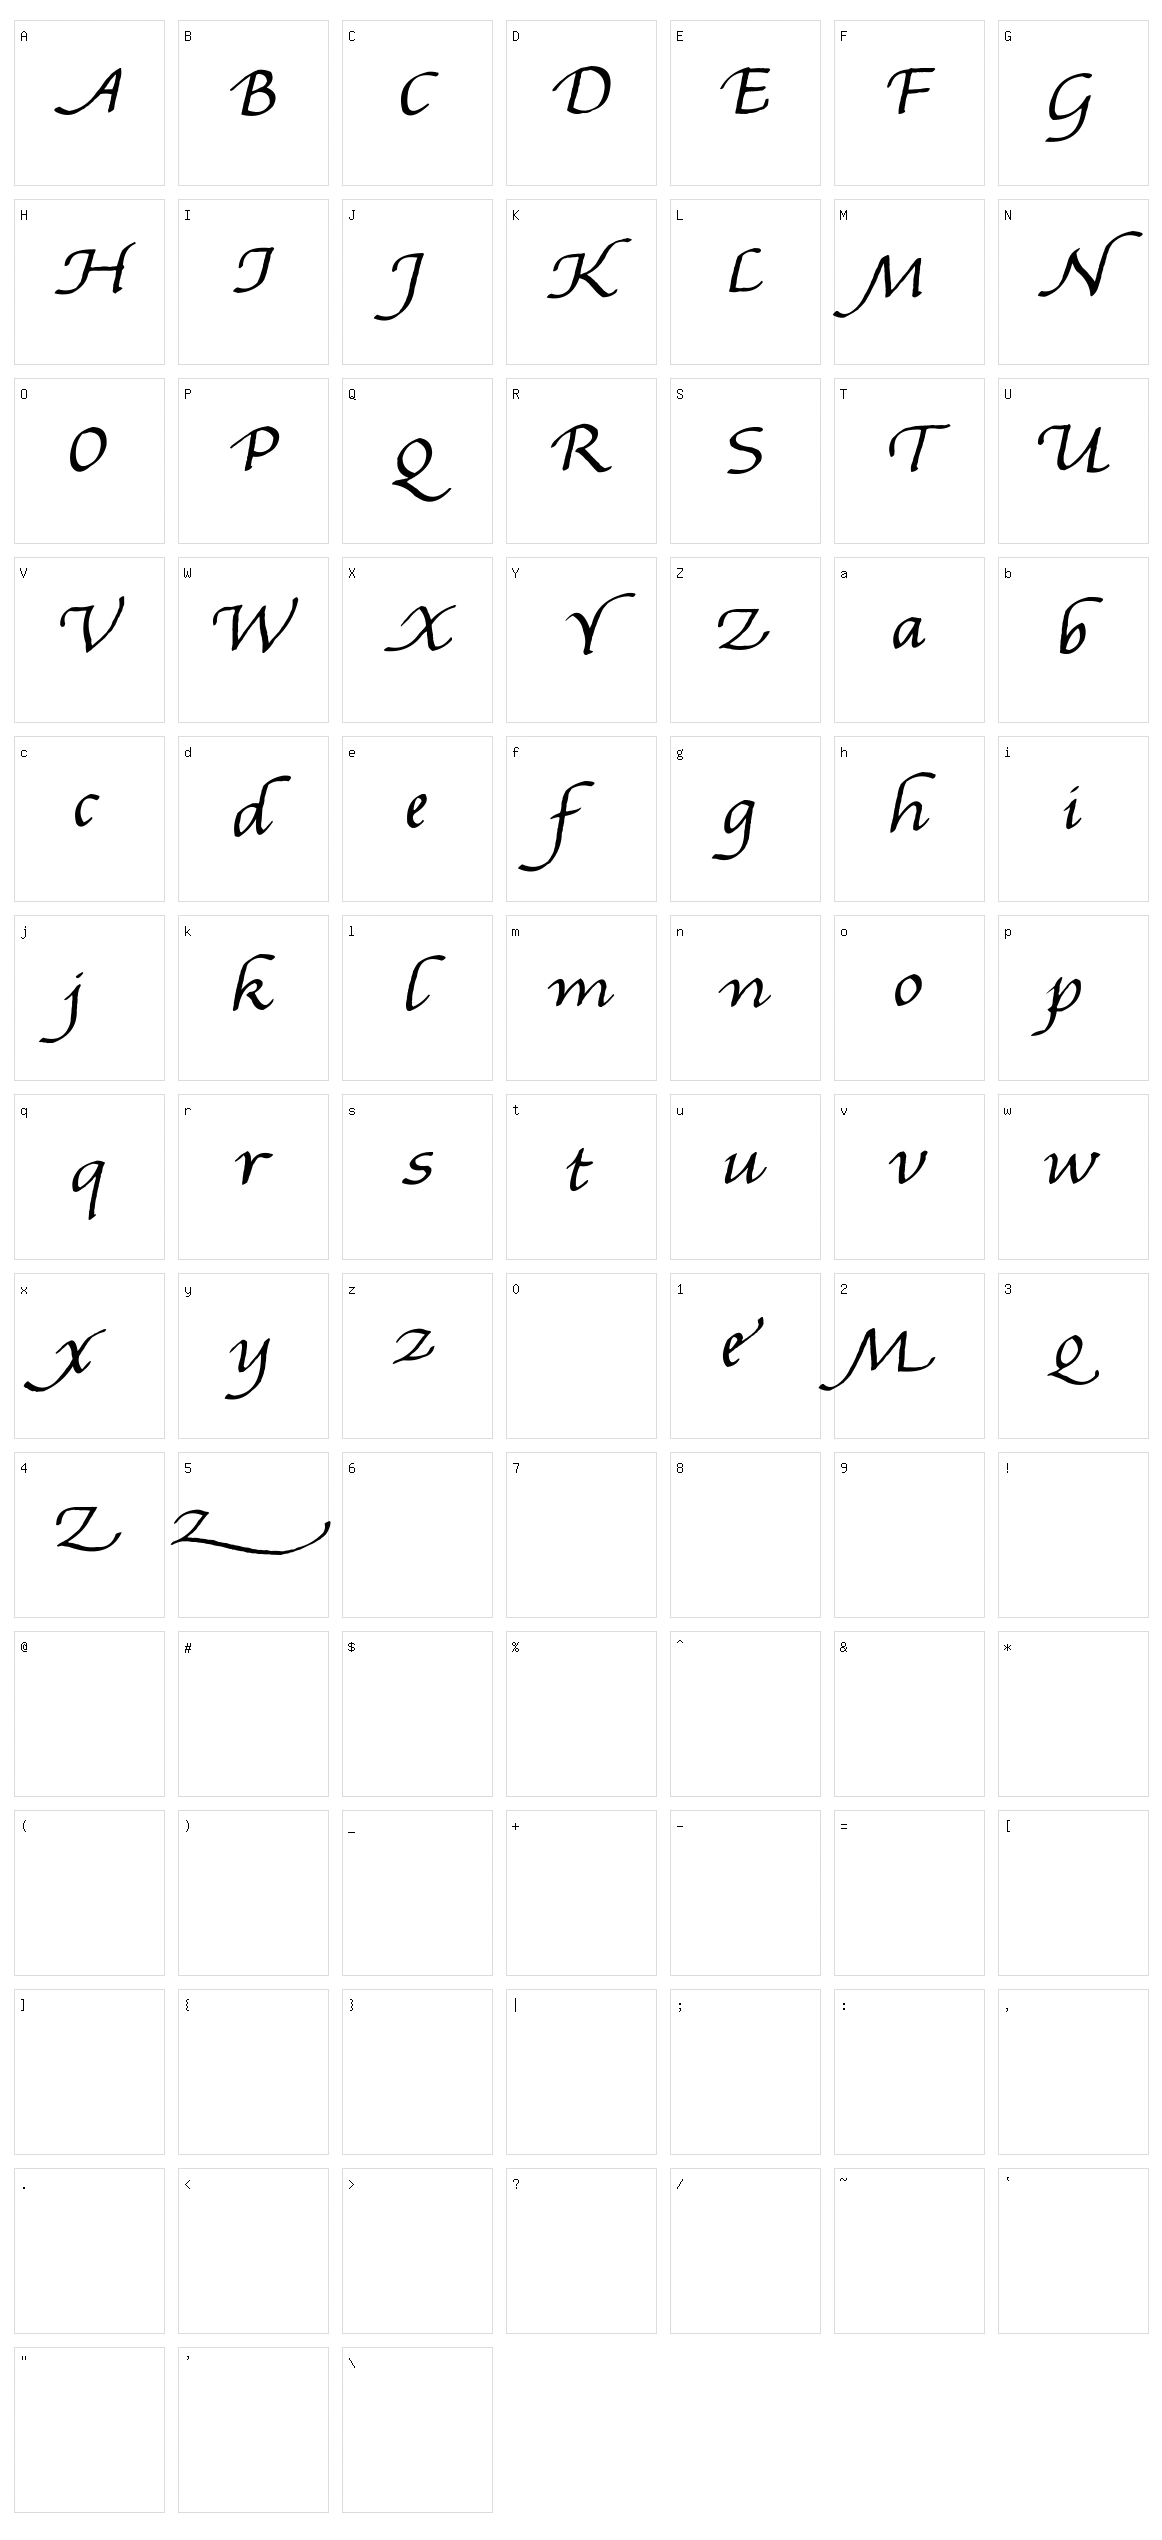 A B C D E F G
A B C D E F G
H I J K L M N
H I J K L M N
O P Q R S T U
O P Q R S T U
V W X Y Z a b
V W X Y Z a b
c d e f g h i
c d e f g h i
j k l m n o p
j k l m n o p
q r s t u v w
q r s t u v w
x y z 0 1 2 3
x y z e M Q
4 5 6 7 8 9 !
Z z
@ # $ % ^ & *
( ) _ + - = [
] { } | ; : ,
. < > ? / ~ `
" ' \